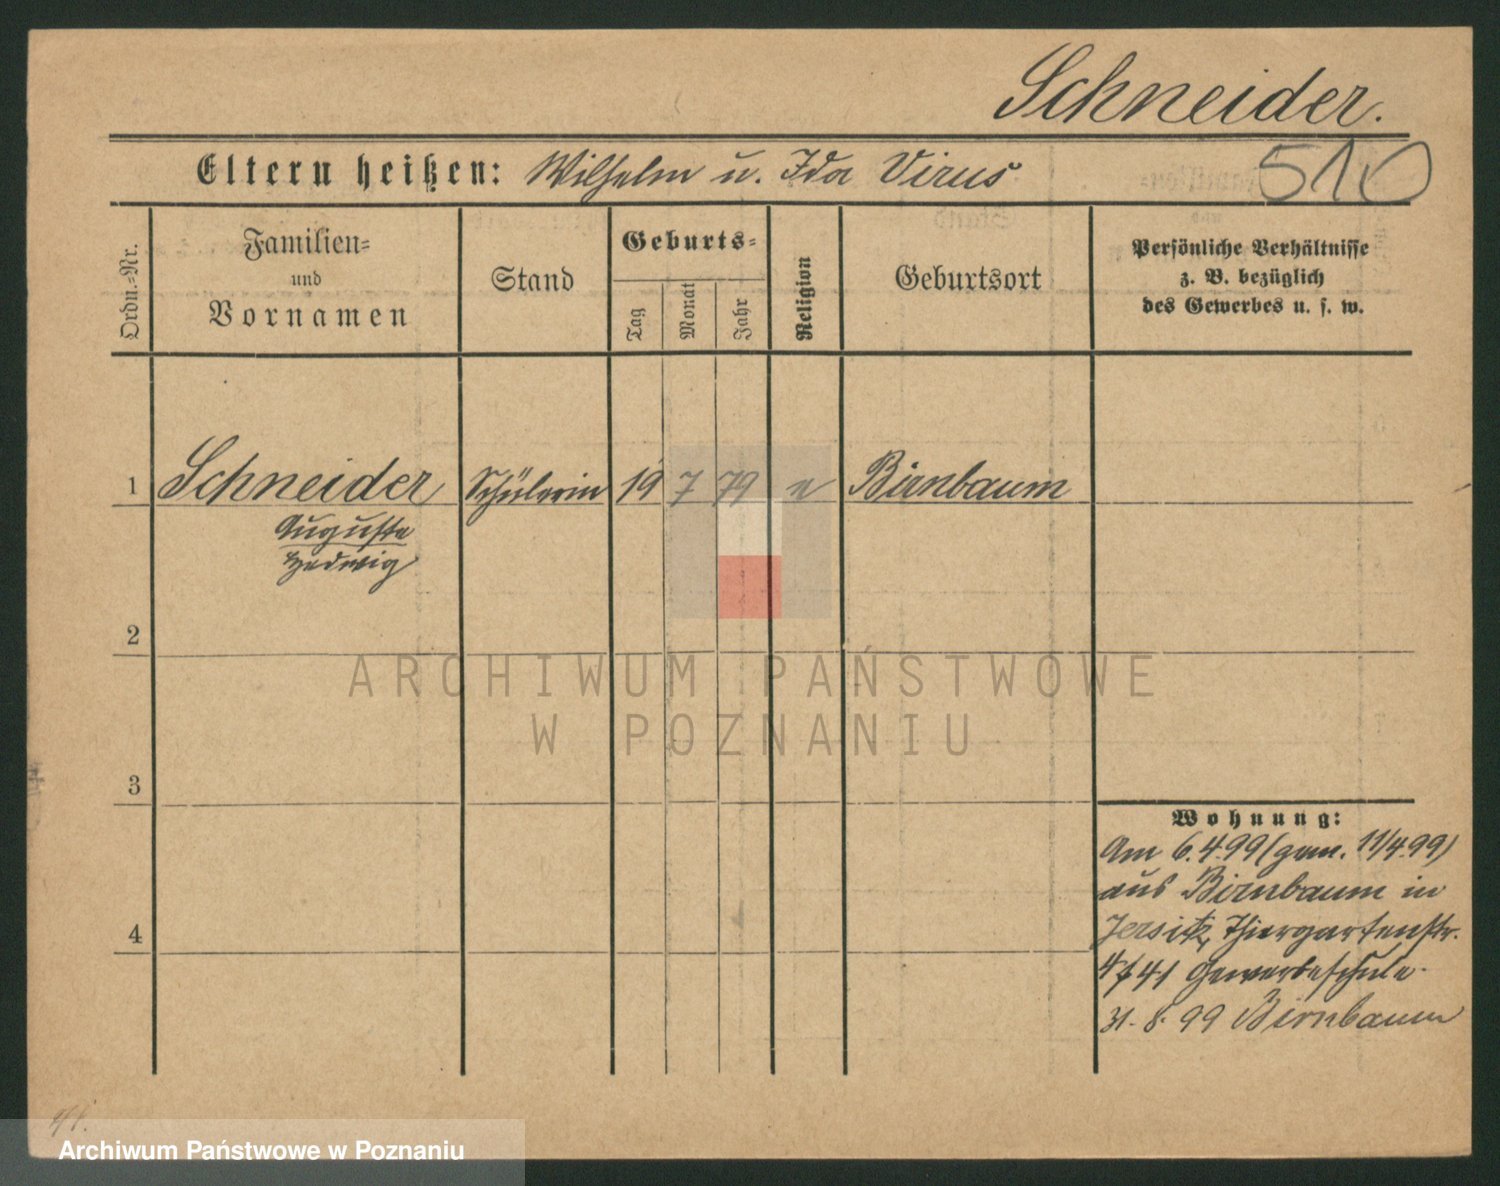 Schneider.
Eltern heißen: Wilhelm u. Ida Virus
510
Ordn.=Nr.
Familien=
und
Vornamen
Stand
Geburts=
Tag
Monat
Jahr
Religion
Geburtsort
Persönliche Verhältnisse
z. B. bezüglich
des Gewerbes u. s. w.
1 Schneider Schülerin 19 7 79 e Birnbaum
Auguste
Hedwig
2
ARCHIWUM PAŃSTWOWE
W POZNANIU
3
Wohnung:
Am 6.4.99 (gem. 11/4.99)
aus Birnbaum in
4
Jersitz, Thiergartenstr.
Gewerbeschule.
31.8.99 Birnbaum
Archiwum Państwowe w Poznaniu